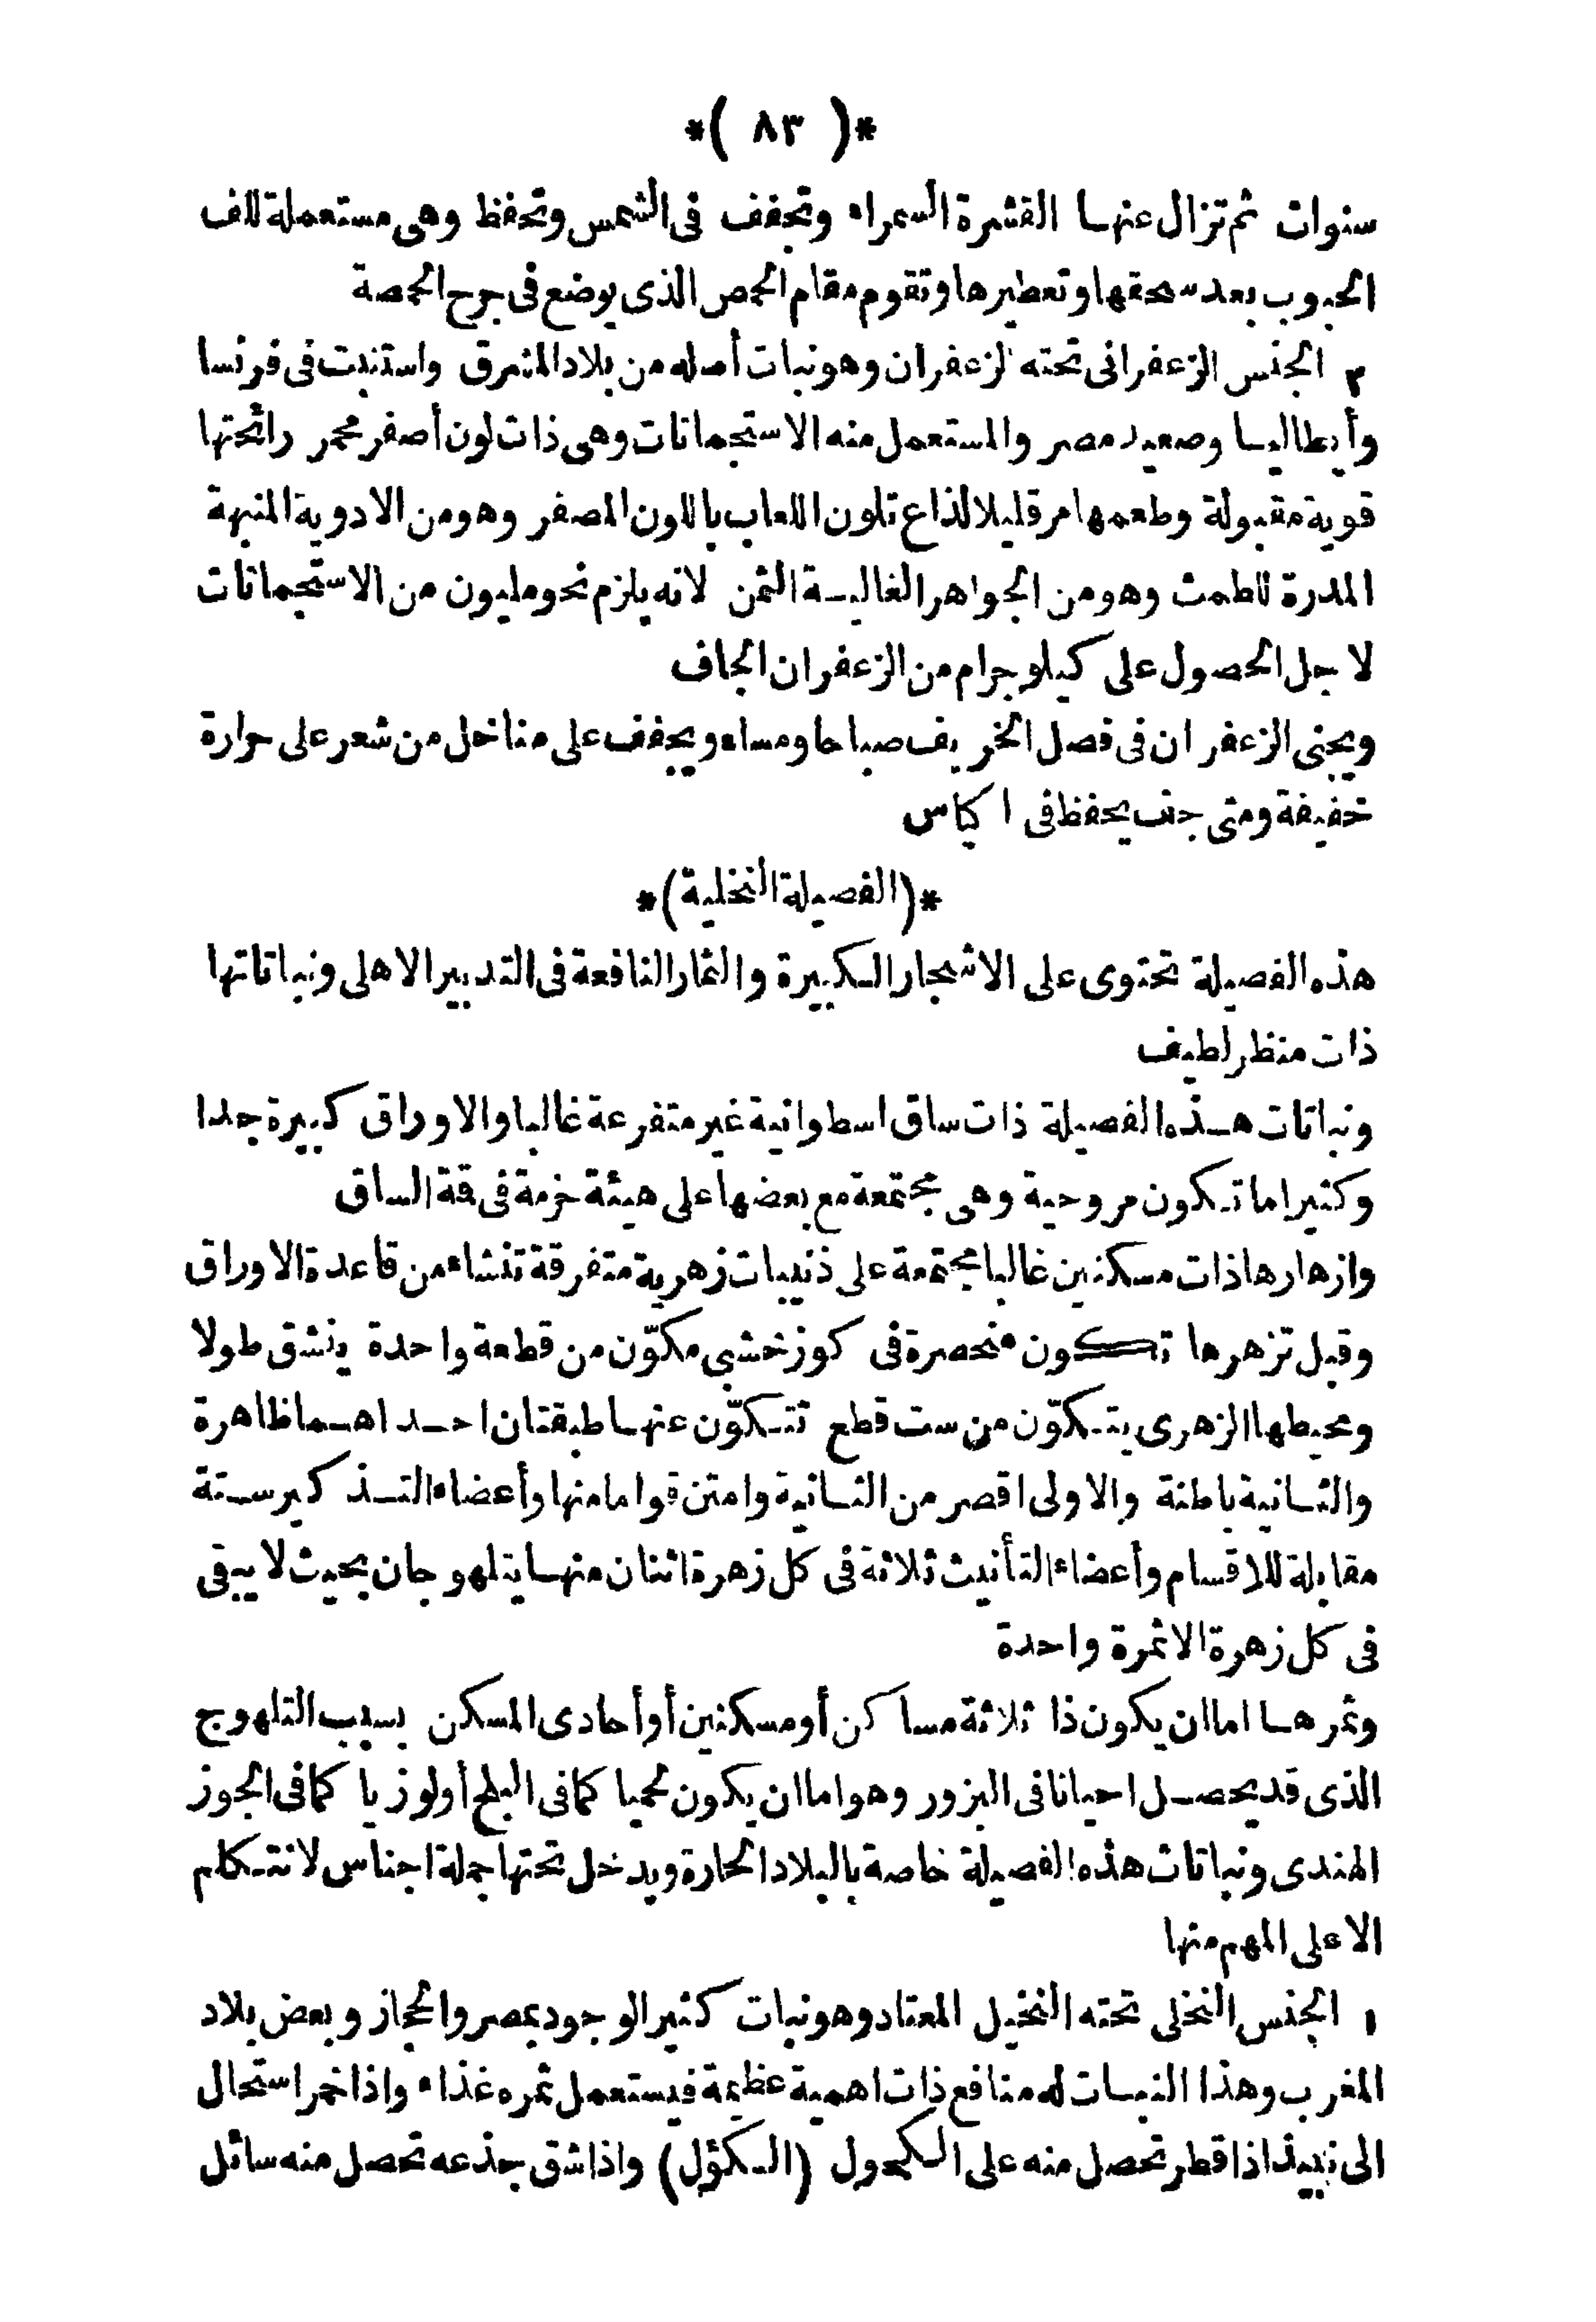 *( ٨٣ )*
سنوات ثم تزال عنها القشرة السمراء وتجفف فى الشمس وتحفظ وهى مستعملة للف
الحبوب بعد سحقها وتعطيرها وتقوم مقام الحمص الذى يوضع فى جرح الحمصة
٣ الجنس الزعفرانى تحته الزعفران وهو نبات أصله من بلاد المشرق واستنبت فى فرنسا
وأيطاليا وصعيد مصر والمستعمل منه الاستجماتات وهى ذات لون أصفر محمر رائحتها
قوية مقبولة وطعمها مر قليلا لذاع تلون اللعاب باللون المصفر وهو من الادوية المنبهة
المدرة للطمث وهو من الجواهر الغالية الثمن لانه يلزم نحو مليون من الاستجماتات
لاجل الحصول على كيلوجرام من الزعفران الجاف
ويجنى الزعفران فى فصل الخريف صباحا ومساء ويجفف على مناخل من شعر على حرارة
خفيفة ومتى جف يحفظ فى اكياس
*(الفصيلة النخلية)*
هذه الفصيلة تحتوى على الاشجار الكبيرة والثمار النافعة فى التدبير الاهلى ونباتاتها
ذات منظر لطيف
ونباتات هذه الفصيلة ذات ساق اسطوانية غير متفرعة غالبا والاوراق كبيرة جدا
وكثيرا ما تكون مروحية وهى مجتمعة مع بعضها على هيئة حزمة فى قمة الساق
وازهارها ذات مسكنين غالبا مجتمعة على ذنيبات زهرية متفرقة تنشاء من قاعدة الاوراق
وقبل تزهرها تكون منحصرة فى كوز خشبى مكوّن من قطعة واحدة ينشق طولا
ومحيطها الزهرى يتكوّن من ست قطع تتكوّن عنها طبقتان احداهما ظاهرة
والثانية باطنة والاولى اقصر من الثانية وامتن قواما منها وأعضاء التذكير ستة
مقابلة للاقسام وأعضاء التأنيث ثلاثة فى كل زهرة اثنان منها يتلهوجان بحيث لا يبقى
فى كل زهرة الا ثمرة واحدة
وثمرها اما ان يكون ذا ثلاثة مساكن أو مسكنين أو أحادى المسكن بسبب التلهوج
الذى قد يحصل احيانا فى البزور وهو اما ان يكون لحميا كما فى البلح أو لوزيا كما فى الجوز
الهندى ونباتات هذه الفصيلة خاصة بالبلاد الحارة ويدخل تحتها جملة اجناس لا نتكلم
الا على المهم منها
١ الجنس النخلى تحته النخيل المعتاد وهو نبات كثير الوجود بمصر والحجاز وبعض بلاد
المغرب وهذا النبات له منافع ذات اهمية عظيمة فيستعمل ثمره غذاء واذا خمر استحال
الى نبيذ اذا قطر تحصل منه على الكحول (الكؤل) واذا شق جذعه تحصل منه سائل